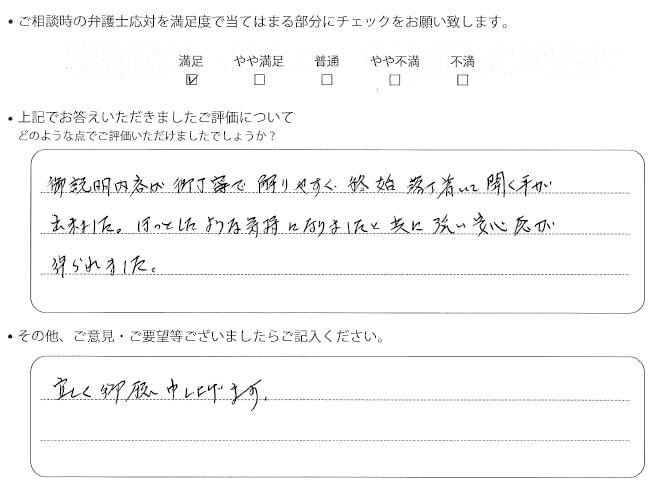 • ご相談時の弁護士応対を満足度で当てはまる部分にチェックをお願い致します。
満足 やや満足 普通 やや不満 不満
☑ ☐ ☐ ☐ ☐
• 上記でお答えいただきましたご評価について
どのような点でご評価いただけましたでしょうか?
御説明内容が御丁寧で解りやすく終始落ち着いて聞く事が
出来ました。ほっとしたような気持になりましたと共に強い安心感が
得られました。
• その他、ご意見・ご要望等ございましたらご記入ください。
宜しく御願い申し上げます。